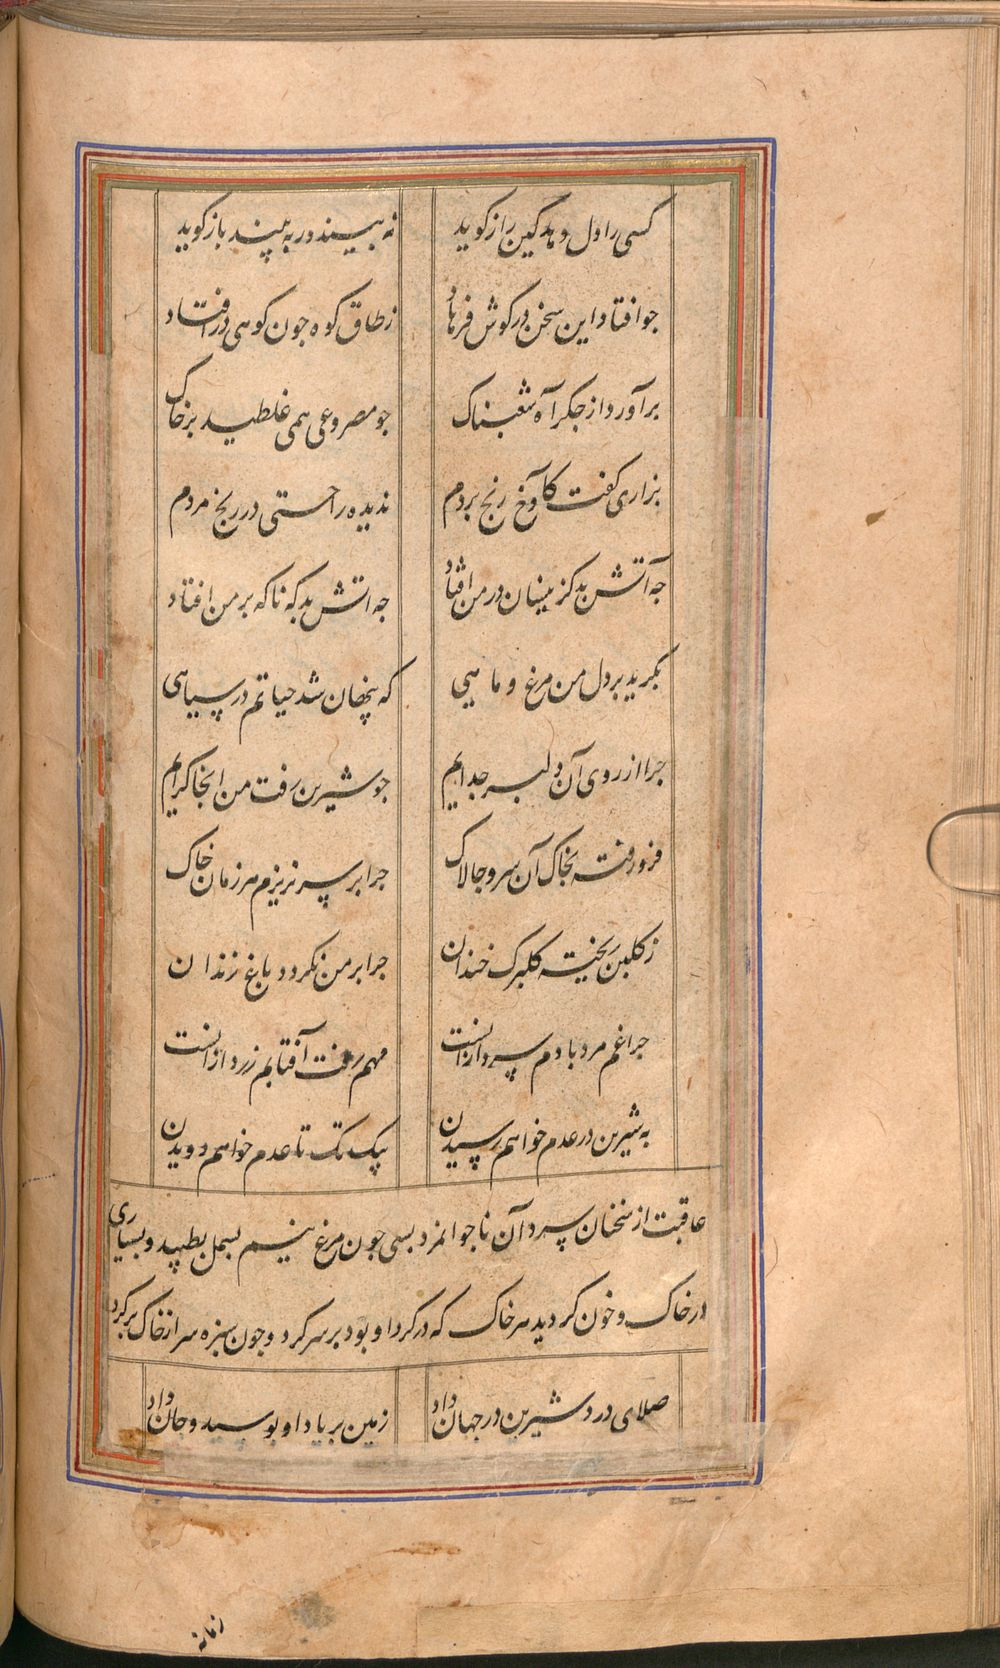 کسی را دل دهد کین راز کوید نه بیند ور به بیند باز کوید
جو افتاد این سخن در کوش فرهاد ز طاق کوه جون کوهی در افتاد
برآورد از جکر آه شغبناک جو مصروعی همی غلطید بر خاک
بزاری کفت کاوخ رنج بردم ندیده راحتی در رنج مردم
جه آتش بد کزینسان در من افتاد جه اتش بد که ناکه بر من افتاد
بکرید بر دل من مرغ و ماهیی که پنهان شد حیاتم در سیاهی
جرا از روی آن دلبر جدایم جو شیرین رفت من اینجا کرایم
فرو رفته بخاک آن سرو جالاک جرا بر سر نریزم هر زمان خاک
ز کلبن ریخته کلبرک خندان جرا بر من نکردد باغ زندان
جراغم مرد بادم سرد ازانست مهم رفت آفتابم زرد ازانست
به شیرین در عدم خواهم رسیدن بیک تک تا عدم خواهم دویدن
عاقبت از سخنان سرد آن ناجوانمرد بسی جون مرغ نیم بسمل بطپید و بسیاری
در خاک و خون کردید هر خاک که در کرد او بود بر سر کرد و جون سبزه سر از خاک بر کرد
صلای درد شیرین در جهان داد زمین بر یاد او بوسید و جان داد
زمانه